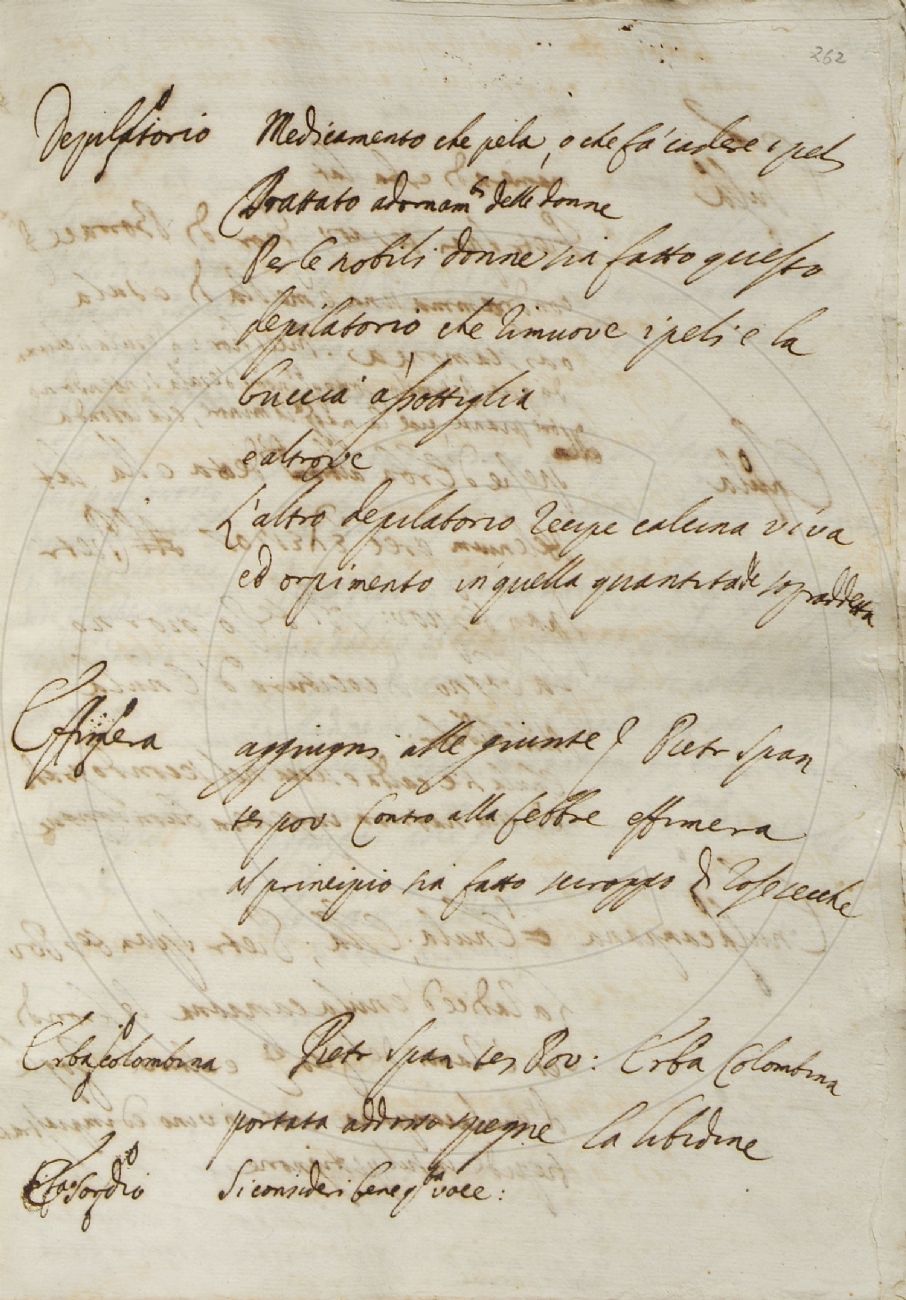 262
Depilatorio Medicamento che pela, o che fà cadere i peli
Trattato adornamti delle donne
Per le nobili donne sia fatto questo
depilatorio che rimuove i peli e la
buccia assottiglia
e altrove
L'altro depilatorio recipe calcina viva
ed orpimento in quella quantitade sopraddetta
Effimera aggiugni alle giunte Pietr Span
tes pov Contro alla febbre effimera
al principio sia fatto sciroppo di rose secche
Erba colombina Pietr Span tes Pov: Erba Colombina
portata addosso spegne la libidine
Si consideri bene qta voce: